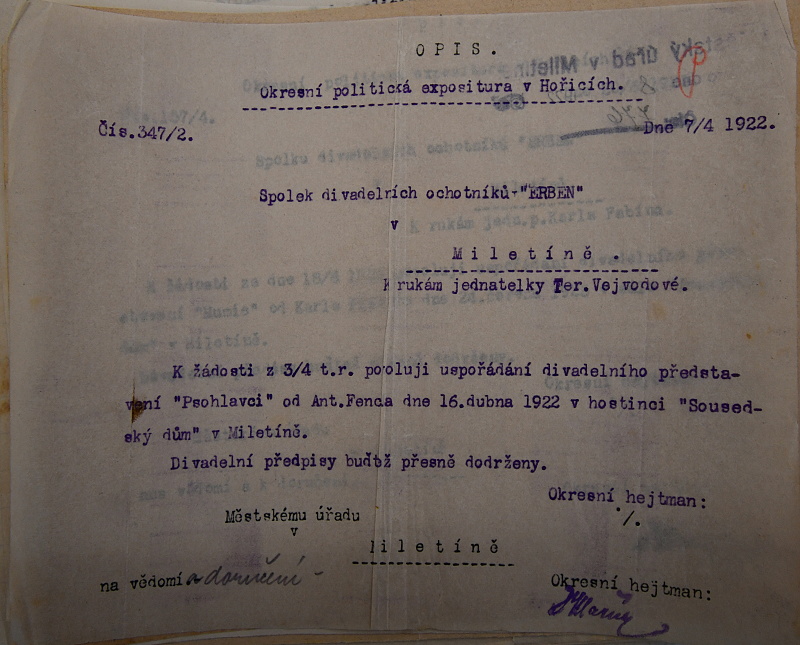 OPIS.
Okresní politická expositura v Hořicích.
Čís.347/2.
Dne 7/4 1922.
Spolek divadelních ochotníků "ERBEN"
v
Miletíně.
K rukám jednatelky Ter.Vejvodové.
K žádosti z 3/4 t.r. povoluji uspořádání divadelního předsta-
vení "Psohlavci" od Ant.Fenca dne 16.dubna 1922 v hostinci "Soused-
ský dům" v Miletíně.
Divadelní předpisy buďtež přesně dodrženy.
Okresní hejtman:
./.
Městskému úřadu
v
Miletíně
na vědomí a doručení -
Okresní hejtman: